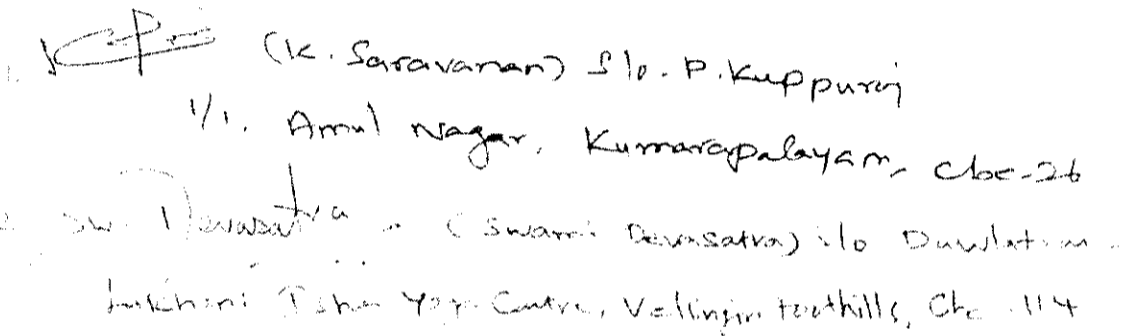 1. (K. Saravanan) S/o. P. Kuppuraj
1/1. Amul Nagar, Kumarapalayam, Cbe-26
2. Sw. Devasatva (Swami Devasatva) S/o
Isha Yoga Centre, Vellingiri Foothills, Cbe 114